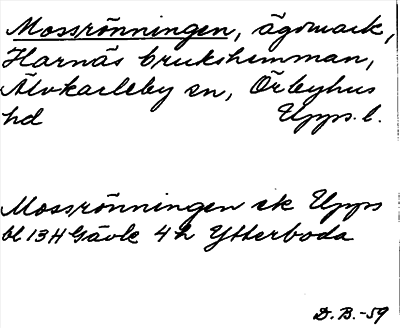 Mossrönningen, ägomark,
Harnäs brukshemman,
Älvkarleby sn, Örbyhus
hd Upps. l.
Mossrönningen ek Upps
bl 13H Gävle 4h Ytterboda
D. B. -59